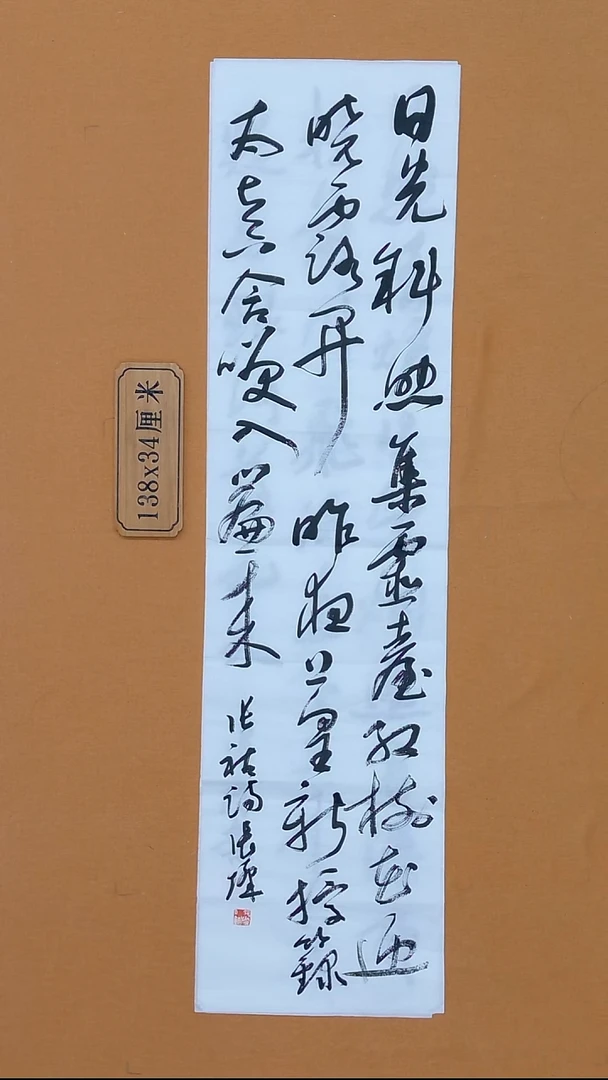 日光斜照集靈臺红树花迎
晓露开昨夜上皇新授籙
太真含笑入簾来 张祜诗 张
138x34厘米